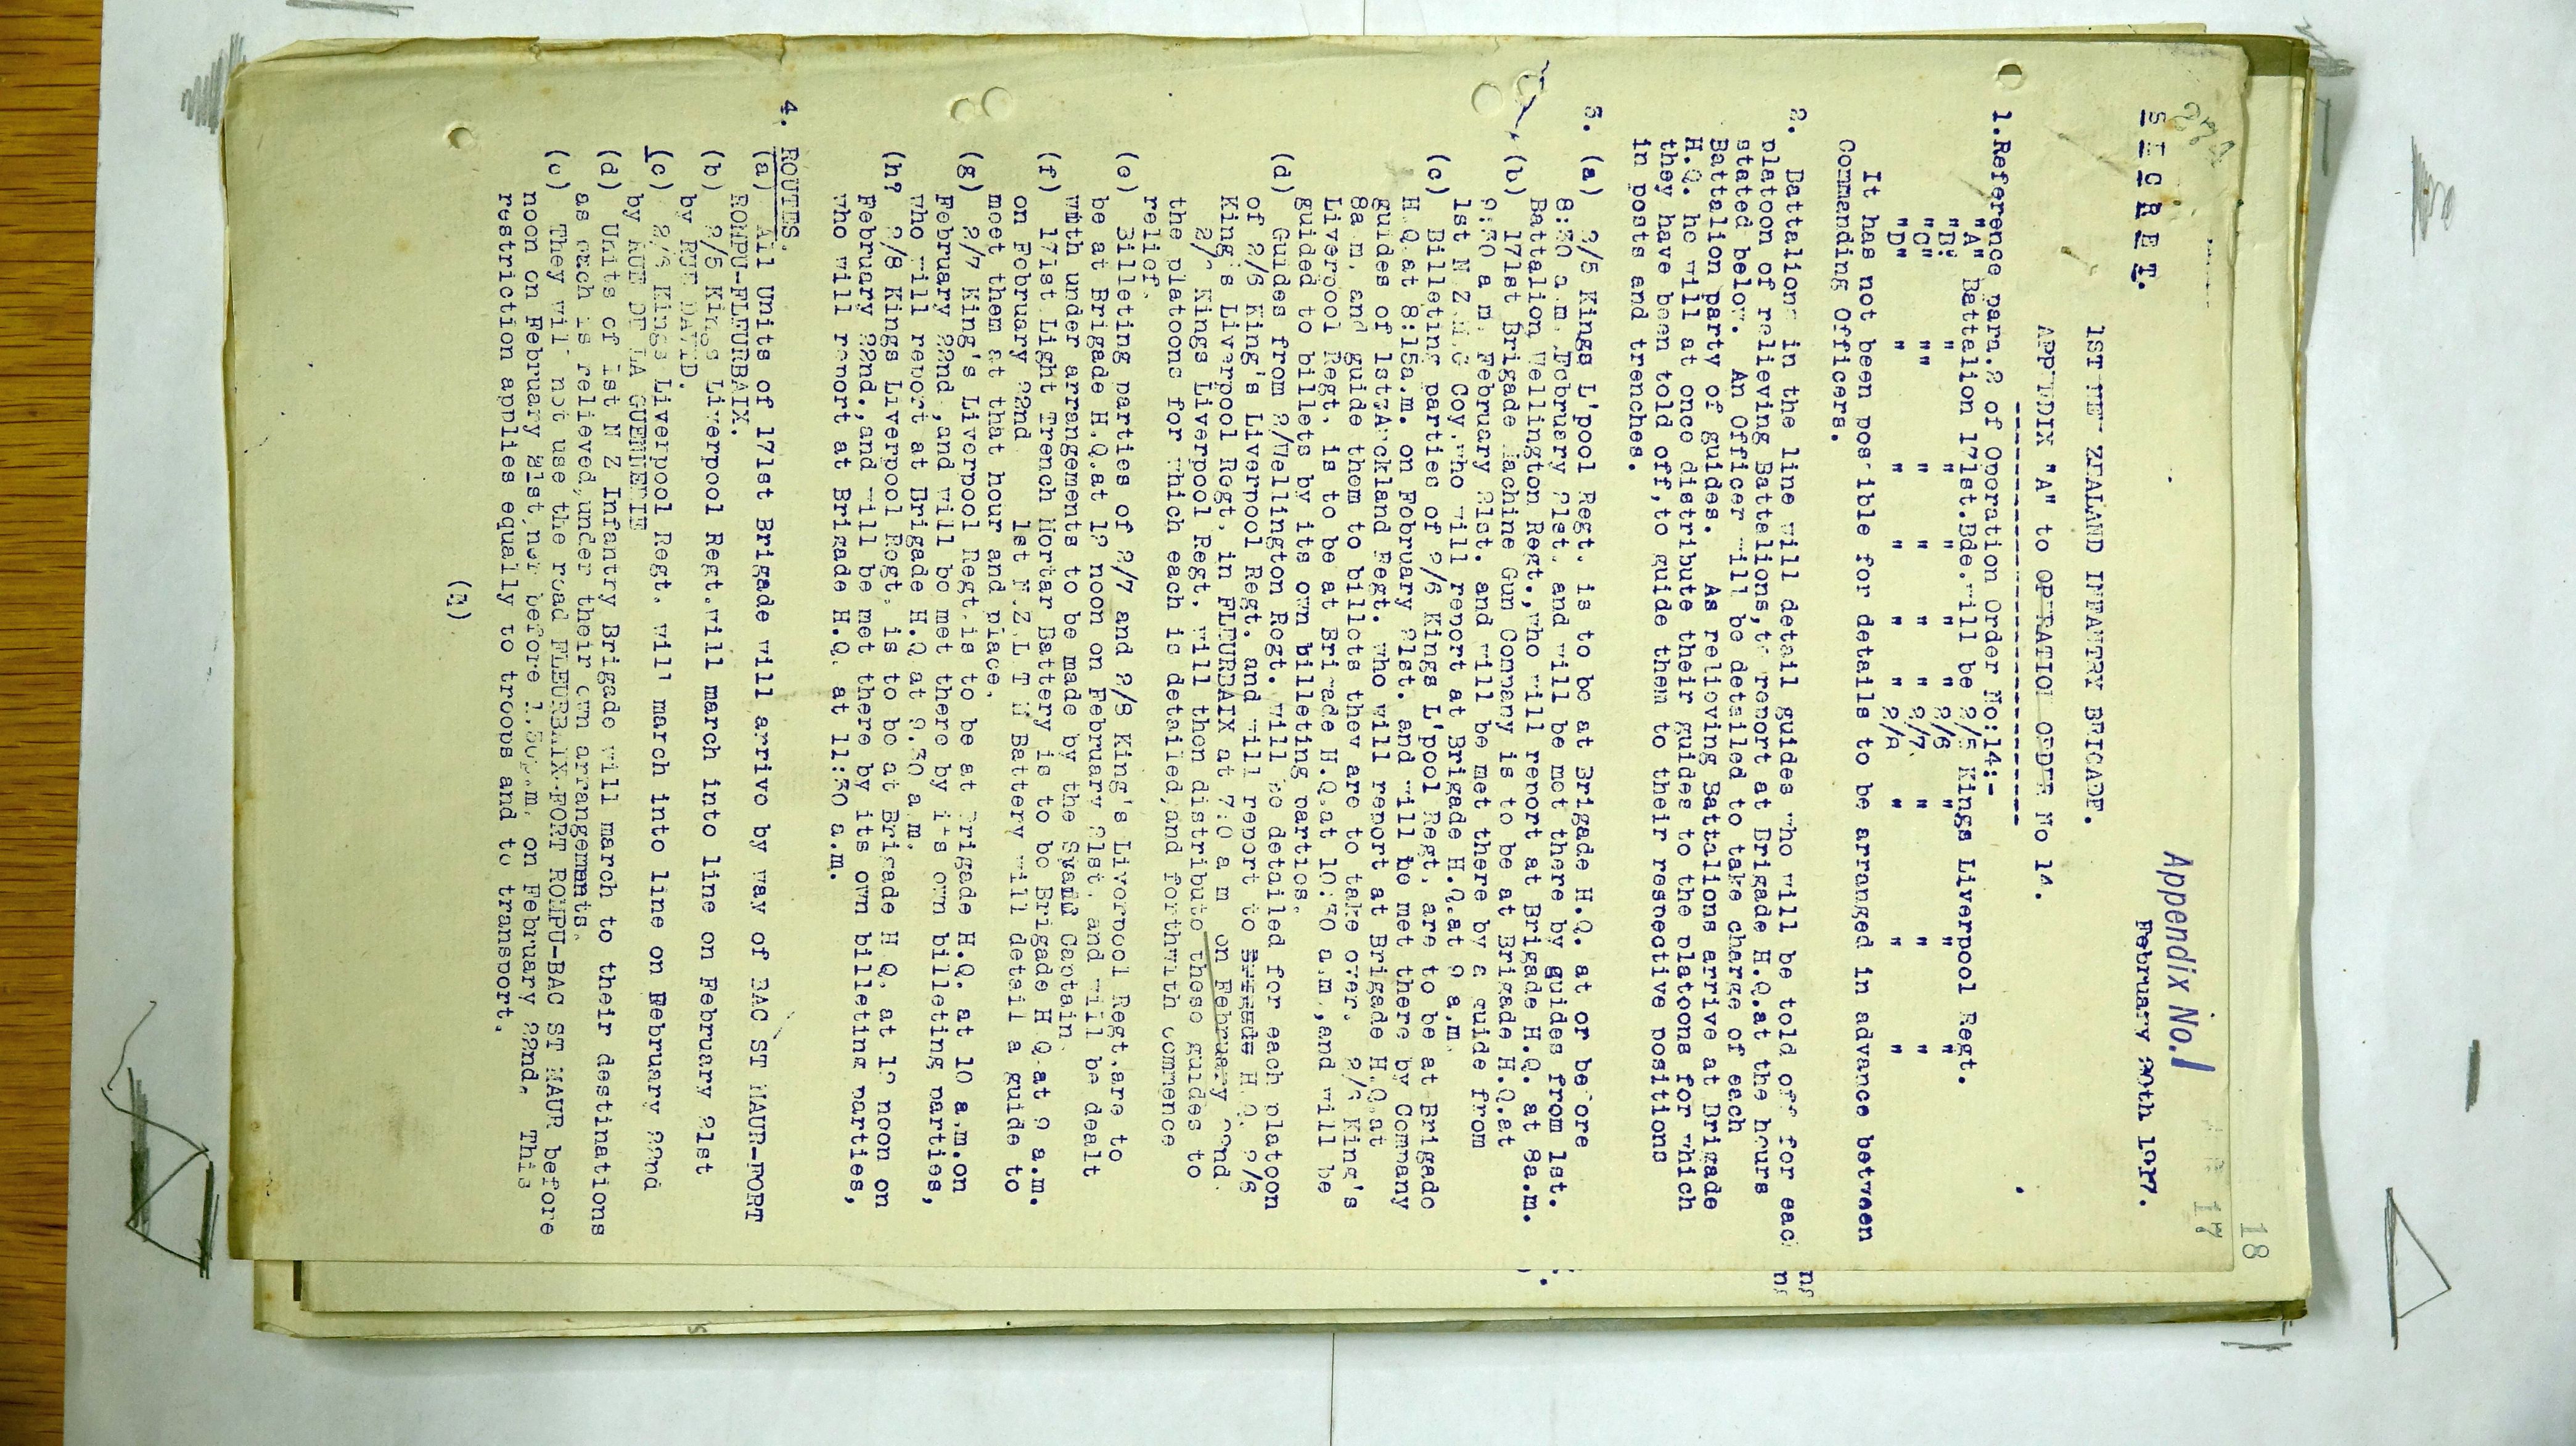 Appendix No. 1
18
17
SECRET.
February 20th 1917.
1ST NEW ZEALAND INFANTRY BRIGADE.
APPENDIX "A" to OPERATION ORDER No 14.
1.Reference para.2 of Operation Order No:14:-
"A" Battalion 171st.Bde.will be 2/5 Kings Liverpool Regt.
"B" " " " " " 2/6 " " "
"C" " " " " " 2/7 " " "
"D" " " " " " 2/8 " " "
It has not been possible for details to be arranged in advance between
Commanding Officers.
2. Battalions in the line will detail guides who will be told off for each
platoon of relieving Battalions,to report at Brigade H.Q.at the hours
stated below. An Officer will be detailed to take charge of each
Battalion party of guides. As relieving Battalions arrive at Brigade
H.Q. he will at once distribute their guides to the platoons for which
they have been told off,to guide them to their respective positions
in posts and trenches.
3. (a) 2/5 Kings L'pool Regt. is to be at Brigade H.Q. at or before
8:30 a.m. February 21st. and will be met there by guides from 1st.
Battalion Wellington Regt.,who will report at Brigade H.Q. at 8a.m.
(b) 171st Brigade Machine Gun Company is to be at Brigade H.Q.at
9:30 a.m. February 21st. and will be met there by a guide from
1st N.Z.M.G Coy.who will report at Brigade H.Q.at 9 a.m.
(c) Billeting parties of 2/6 Kings L'pool Regt. are to be at Brigade
H.Q.at 8:15a.m. on February 21st. and will be met there by Company
guides of 1st/Auckland Regt. who will report at Brigade H.Q.at
8a.m. and guide them to billets they are to take over. 2/6 King's
Liverpool Regt. is to be at Brigade H.Q.at 10:30 a.m.,and will be
guided to billets by its own billeting parties.
(d) Guides from 2/Wellington Regt. will be detailed for each platoon
of 2/6 King's Liverpool Regt. and will report to H.Q. 2/6
King's Liverpool Regt. in FLEURBAIX at 7:0 a m on February 22nd.
2/6 Kings Liverpool Regt. will then distribute these guides to
the platoons for which each is detailed,and forthwith commence
relief.
(e) Billeting parties of 2/7 and 2/8 King's Liverpool Regt.are to
be at Brigade H.Q.at 12 noon on February 21st. and will be dealt
with under arrangements to be made by the Staff Captain.
(f) 171st Light Trench Mortar Battery is to be Brigade H Q at 9 a.m.
on February 22nd 1st N.Z.L T M Battery will detail a guide to
meet them at that hour and place.
(g) 2/7 King's Liverpool Regt.is to be at Brigade H.Q. at 10 a.m.on
February 22nd,and will be met there by its own billeting parties,
who will report at Brigade H.Q at 9.30 a m.
(h? 2/8 Kings Liverpool Regt. is to be at Brigade H Q. at 12 noon on
February 22nd.,and will be met there by its own billeting parties,
who will report at Brigade H.Q. at 11:30 a.m.
4. ROUTES.
(a) All Units of 171st Brigade will arrive by way of BAC ST MAUR-FORT
ROMPU-FLEURBAIX.
(b) 2/5 Kings Liverpool Regt.will march into line on February 21st
by RUE DAVID.
(c) 2/6 Kings Liverpool Regt. will march into line on February 22nd
by RUE DE LA GUERNERIE
(d) Units of 1st N Z Infantry Brigade will march to their destinations
as each is relieved,under their own arrangements.
(c) They will not use the road FLEURBAIX-FORT ROMPU-BAC ST MAUR before
noon on February 21st,nor before 1.30p.m. on February 22nd. This
restriction applies equally to troops and to transport.